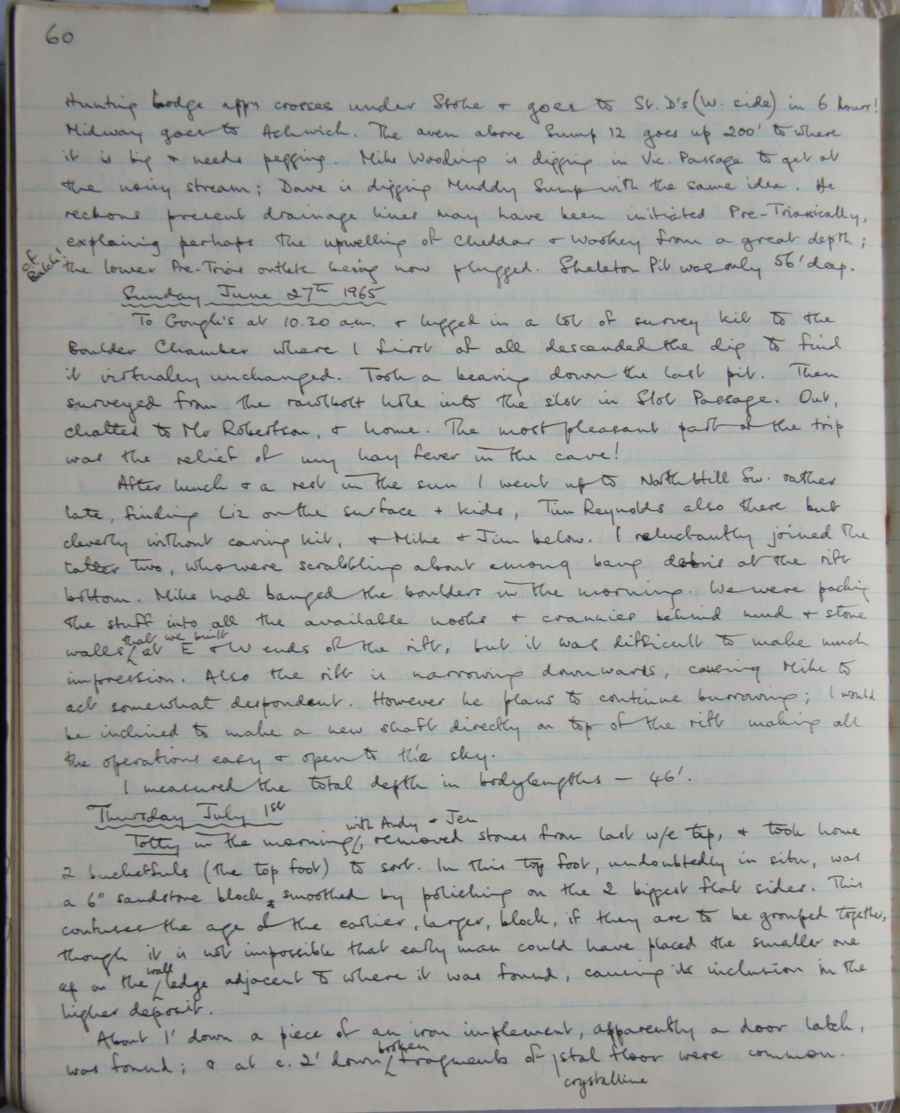 60
Hunting Lodge appn crosses under Stoke & goes to St. D's (W. side) in 6 hours!
Midway goes to Ashwick. The aven above Sump 12 goes up 200' to where
it is big & needs pegging. Mike Wooding is digging in Vic. Passage to get at
the noisy stream; Dave is digging Muddy Sump with the same idea. He
reckons present drainage lines may have been initiated Pre-Triassically,
explaining perhaps the upwelling of Cheddar & Wookey from a great depth;
cf.
the lower Pre-Trias outlets being now plugged. Skeleton Pit was only 56' deep.
Sunday June 27th 1965
To Gough's at 10.30 am. & lugged in a lot of survey kit to the
Boulder Chamber where I first of all descended the dig to find
it virtually unchanged. Took a bearing down the last pit. Then
surveyed from the rawlbolt hole into the slot in Slot Passage. Out,
chatted to Mr Robertson, & home. The most pleasant part of the trip
was the relief of my hay fever in the cave!
After lunch & a rest in the sun I went up to North Hill Sw. rather
late, finding Liz on the surface + kids, Tim Reynolds also there but
cleverly without caving kit, & Mike & Jim below. I reluctantly joined the
latter two, who were scrabbling about among bang debris at the rift
bottom. Mike had banged the boulders in the morning. We were packing
the stuff into all the available nooks & crannies behind mud & stone
that we built
walls at E & W ends of the rift, but it was difficult to make much
impression. Also the rift is narrowing downwards, causing Mike to
act somewhat despondent. However he plans to continue burrowing; I would
be inclined to make a new shaft directly on top of the rift making all
the operations easy & open to the sky.
I measured the total depth in bodylengths — 46'.
Thursday July 1st
with Andy & Jen
Totty in the morning, removed stones from last w/e tip, & took home
2 bucketfuls (the top foot) to sort. In this top foot, undoubtedly in situ, was
a 6" sandstone block smoothed by polishing on the 2 biggest flat sides. This
confuses the age of the earlier, larger, block, if they are to be grouped together,
though it is not impossible that early man could have placed the smaller one
wall
up on the ledge adjacent to where it was found, causing its inclusion in the
higher deposit.
About 1' down a piece of an iron implement, apparently a door latch,
broken
was found; & at c. 2' down fragments of stal floor were common.
crystalline